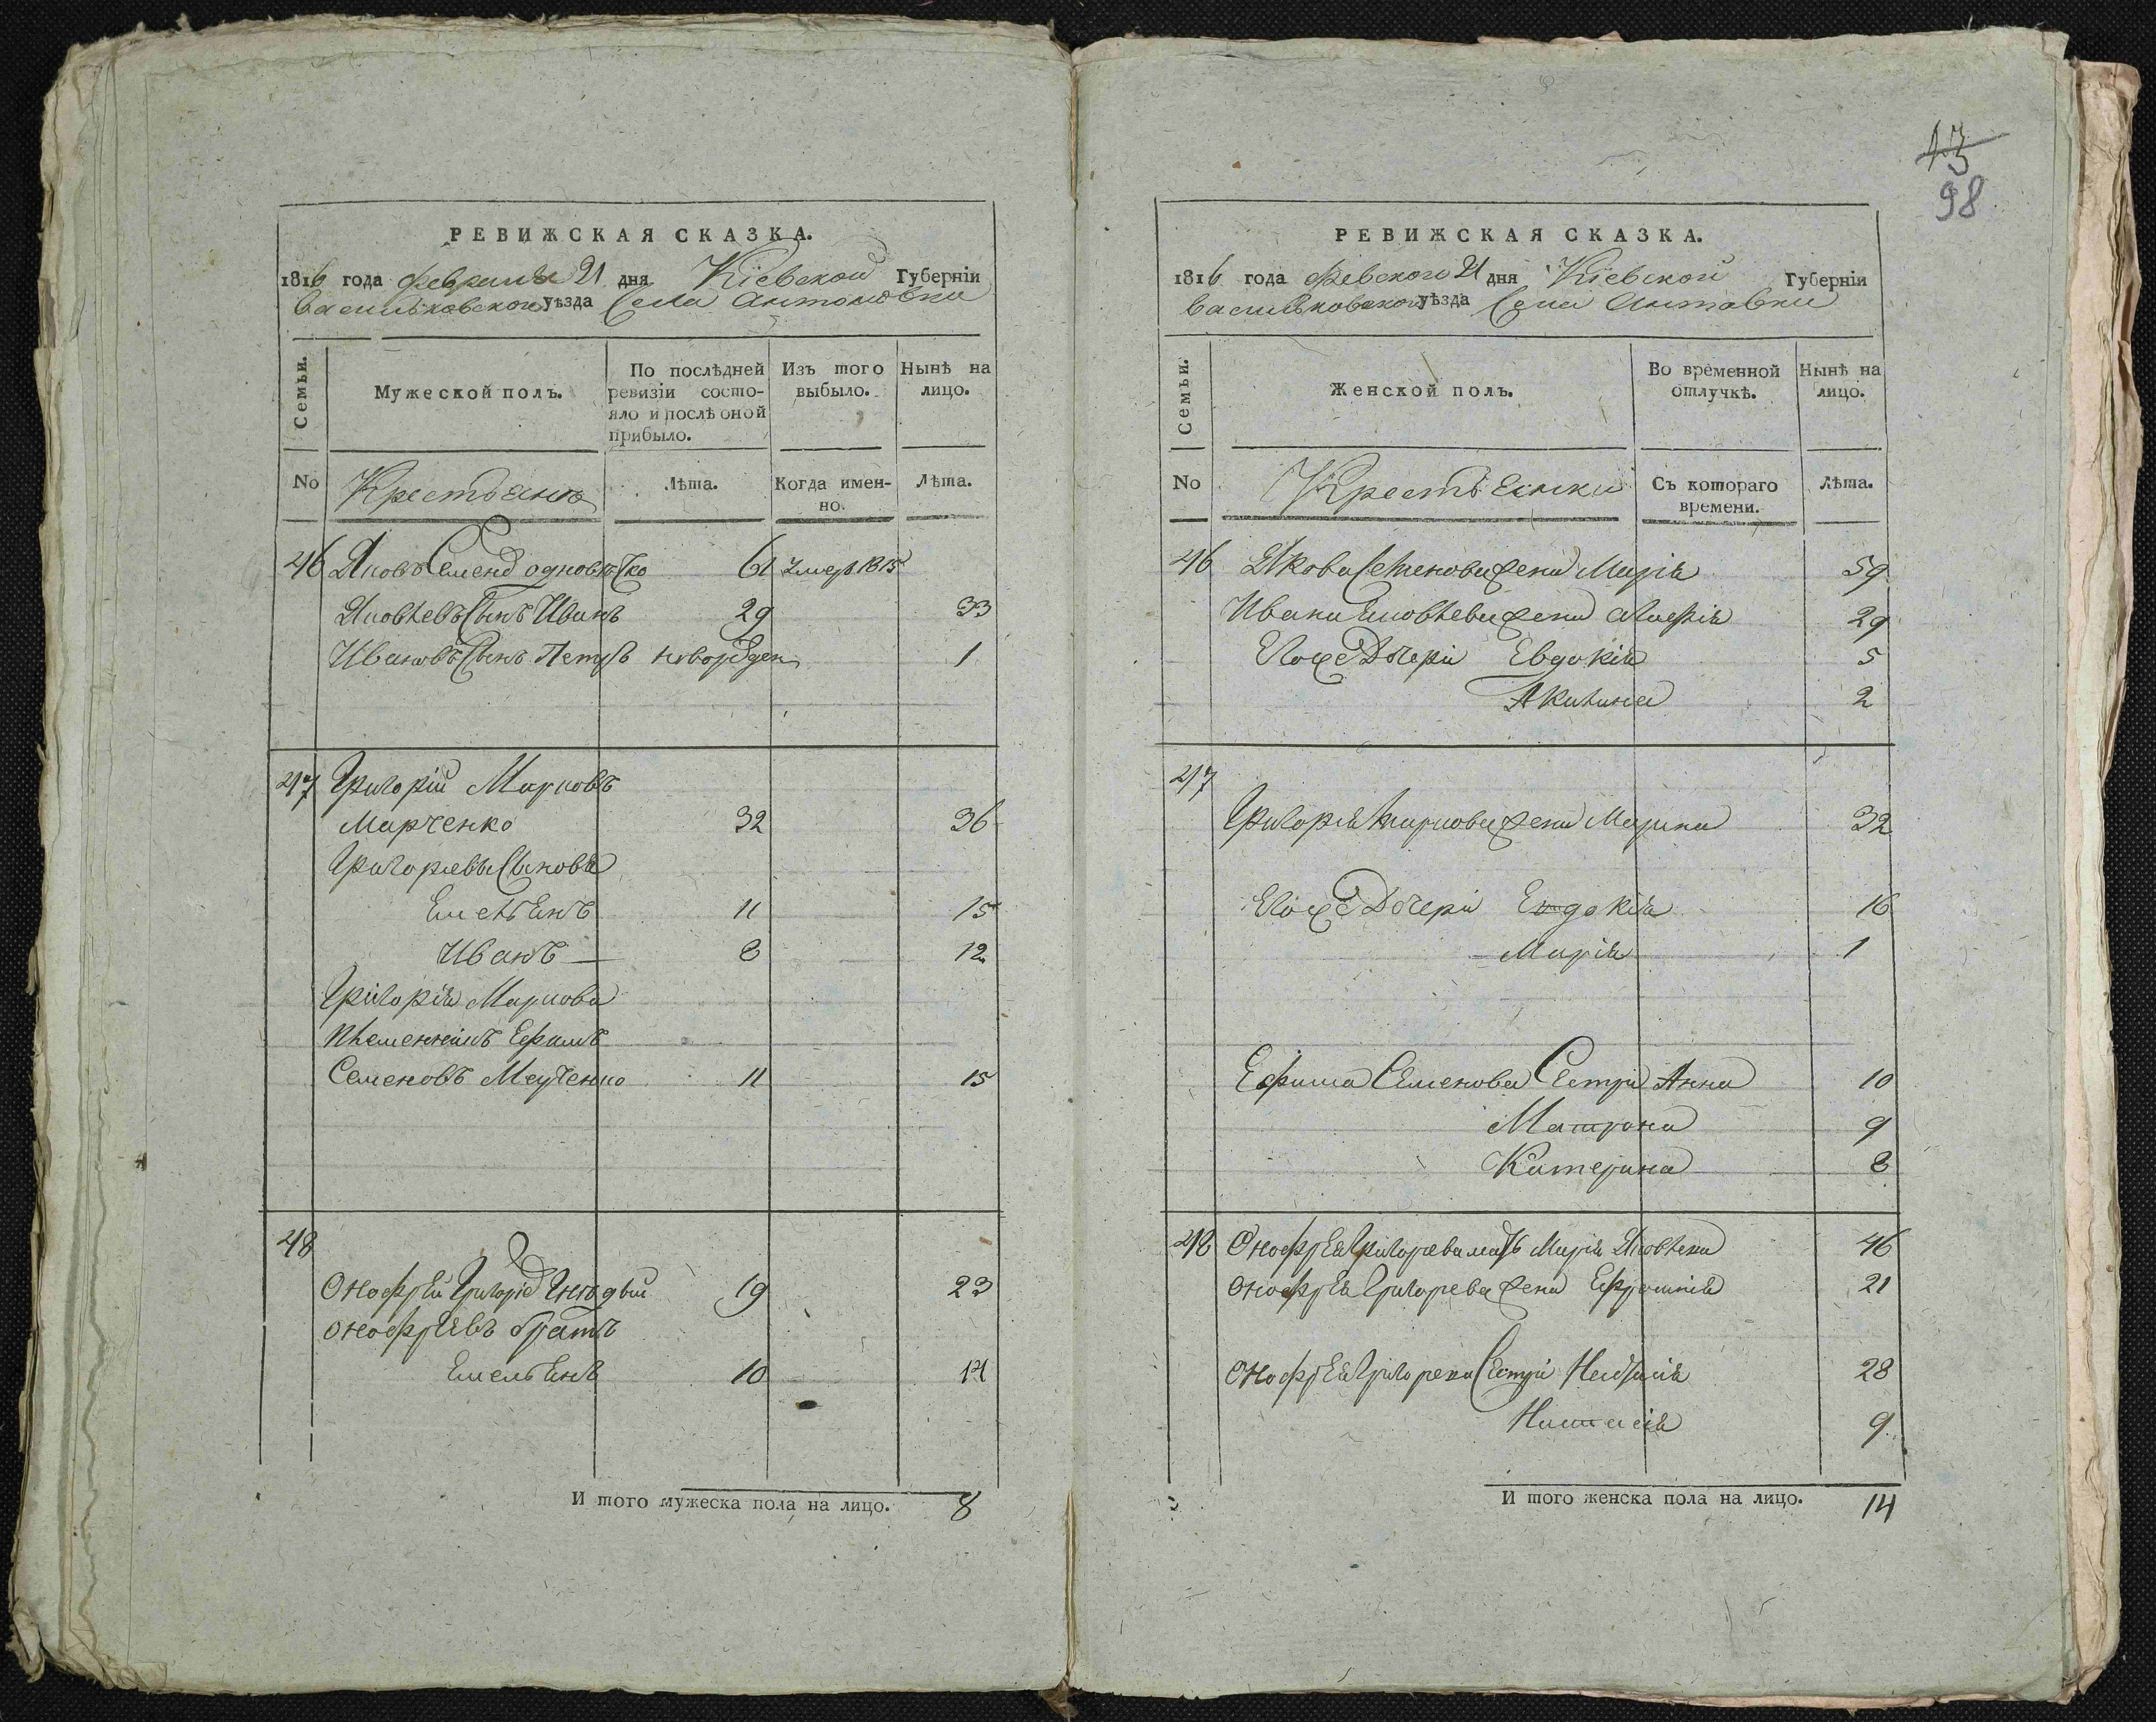 РЕВИЖСКАЯ СКАЗКА.
1816 года Февраля 21 дня Кіевской Губерніи
Васильковского уѣзда Села Антоновки
Семьи.
Мужеской полъ.
По послѣдней ревизіи состо-
яло и послѣ оной прибыло.
Изъ того выбыло.
Нынѣ на лицо.
No
Крестьянѣ
Лѣта.
Когда имен-
но.
Лѣта.
46 Яковъ Семено 61 Умер. 1815
Яковлевъ Сынъ Иванъ 29 33
Ивановъ Сынъ Петръ новорожден 1
47 Григорій Марковъ
Марченко 32 36
Григорьевы Сыновя
Емельянъ 11 15
Иванъ — 8 12
Григорія Маркова
племенникъ Ефимъ
Семеновъ 11 15
48
Онофрей Григорье 19 23
Онофрѣевъ братъ
Емельянъ 10 14
И того мужеска пола на лицо. 8
13
98
РЕВИЖСКАЯ СКАЗКА.
1816 года 21 дня Кіевской Губерніи
Васильковского уѣзда Села Антовки
Семьи.
Женской полъ.
Во временной отлучкѣ.
Нынѣ на лицо.
No
Крестьянки
Съ котораго времени.
Лѣта.
46 Якова Семенова жена Марія 59
Ивана Яковлева жена 29
Его же Дочери Евдокія 5
Акилина 2
47
Григорія Маркова жена Марина 32
Его же Дочери Евдокія 16
Марія 1
Ефима Семенова Сестри Анна 10
Матрона 9
Катерина 8
48 Онофрея Григорева мать Марія Яковлева 46
Онофрея Григорева жена Ефросинія 21
Онофрея Сестри 28
Настасія 9
И того женска пола на лицо. 14